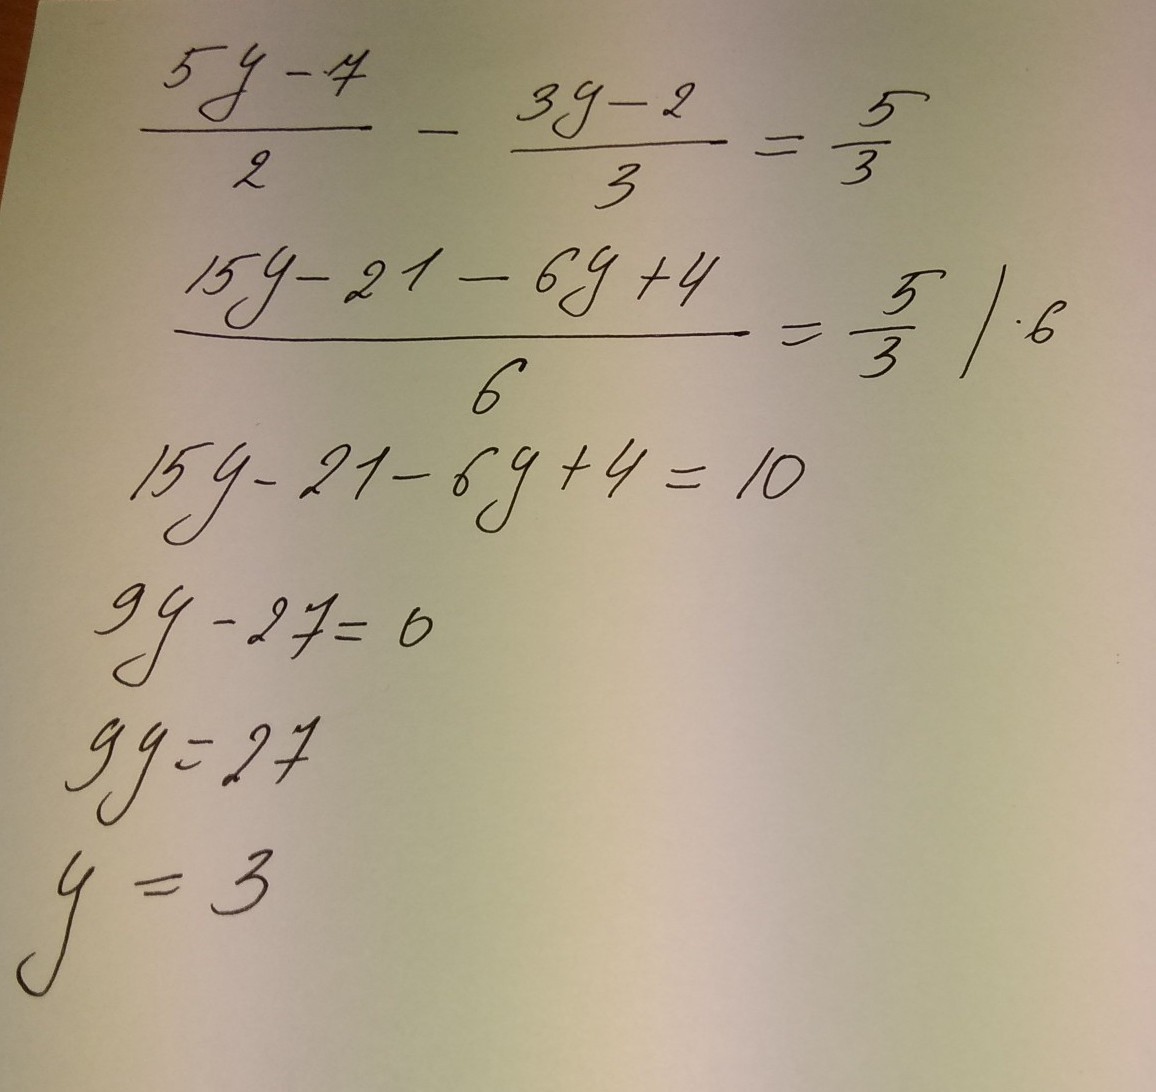 (5y-7)/2 - (3y-2)/3 = 5/3
(15y-21-6y+4)/6 = 5/3 | ·6
15y-21-6y+4=10
9y-27=0
9y=27
y=3